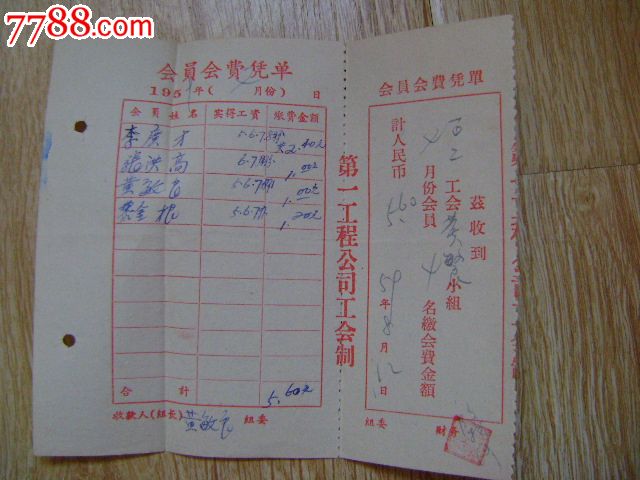 7788.com
会員会費凭单
195 年( 月份) 日
会員姓名 实得工資 繳費金額
李广才 5.6.7.8月份 共2.40元
張洪高 6.7.8月份 1.00元
黄敏良 5.6.7月份 1.00元
5.6.7月 1.20元
合計 5.60元
收款人(組長) 黄敏良 組委
第一工程公司工会制
会員会費凭單
茲收到
工会黄敏良小組
月份会員 4 名繳会費金額
計人民幣 5.60
59年8月12日
組委 財务